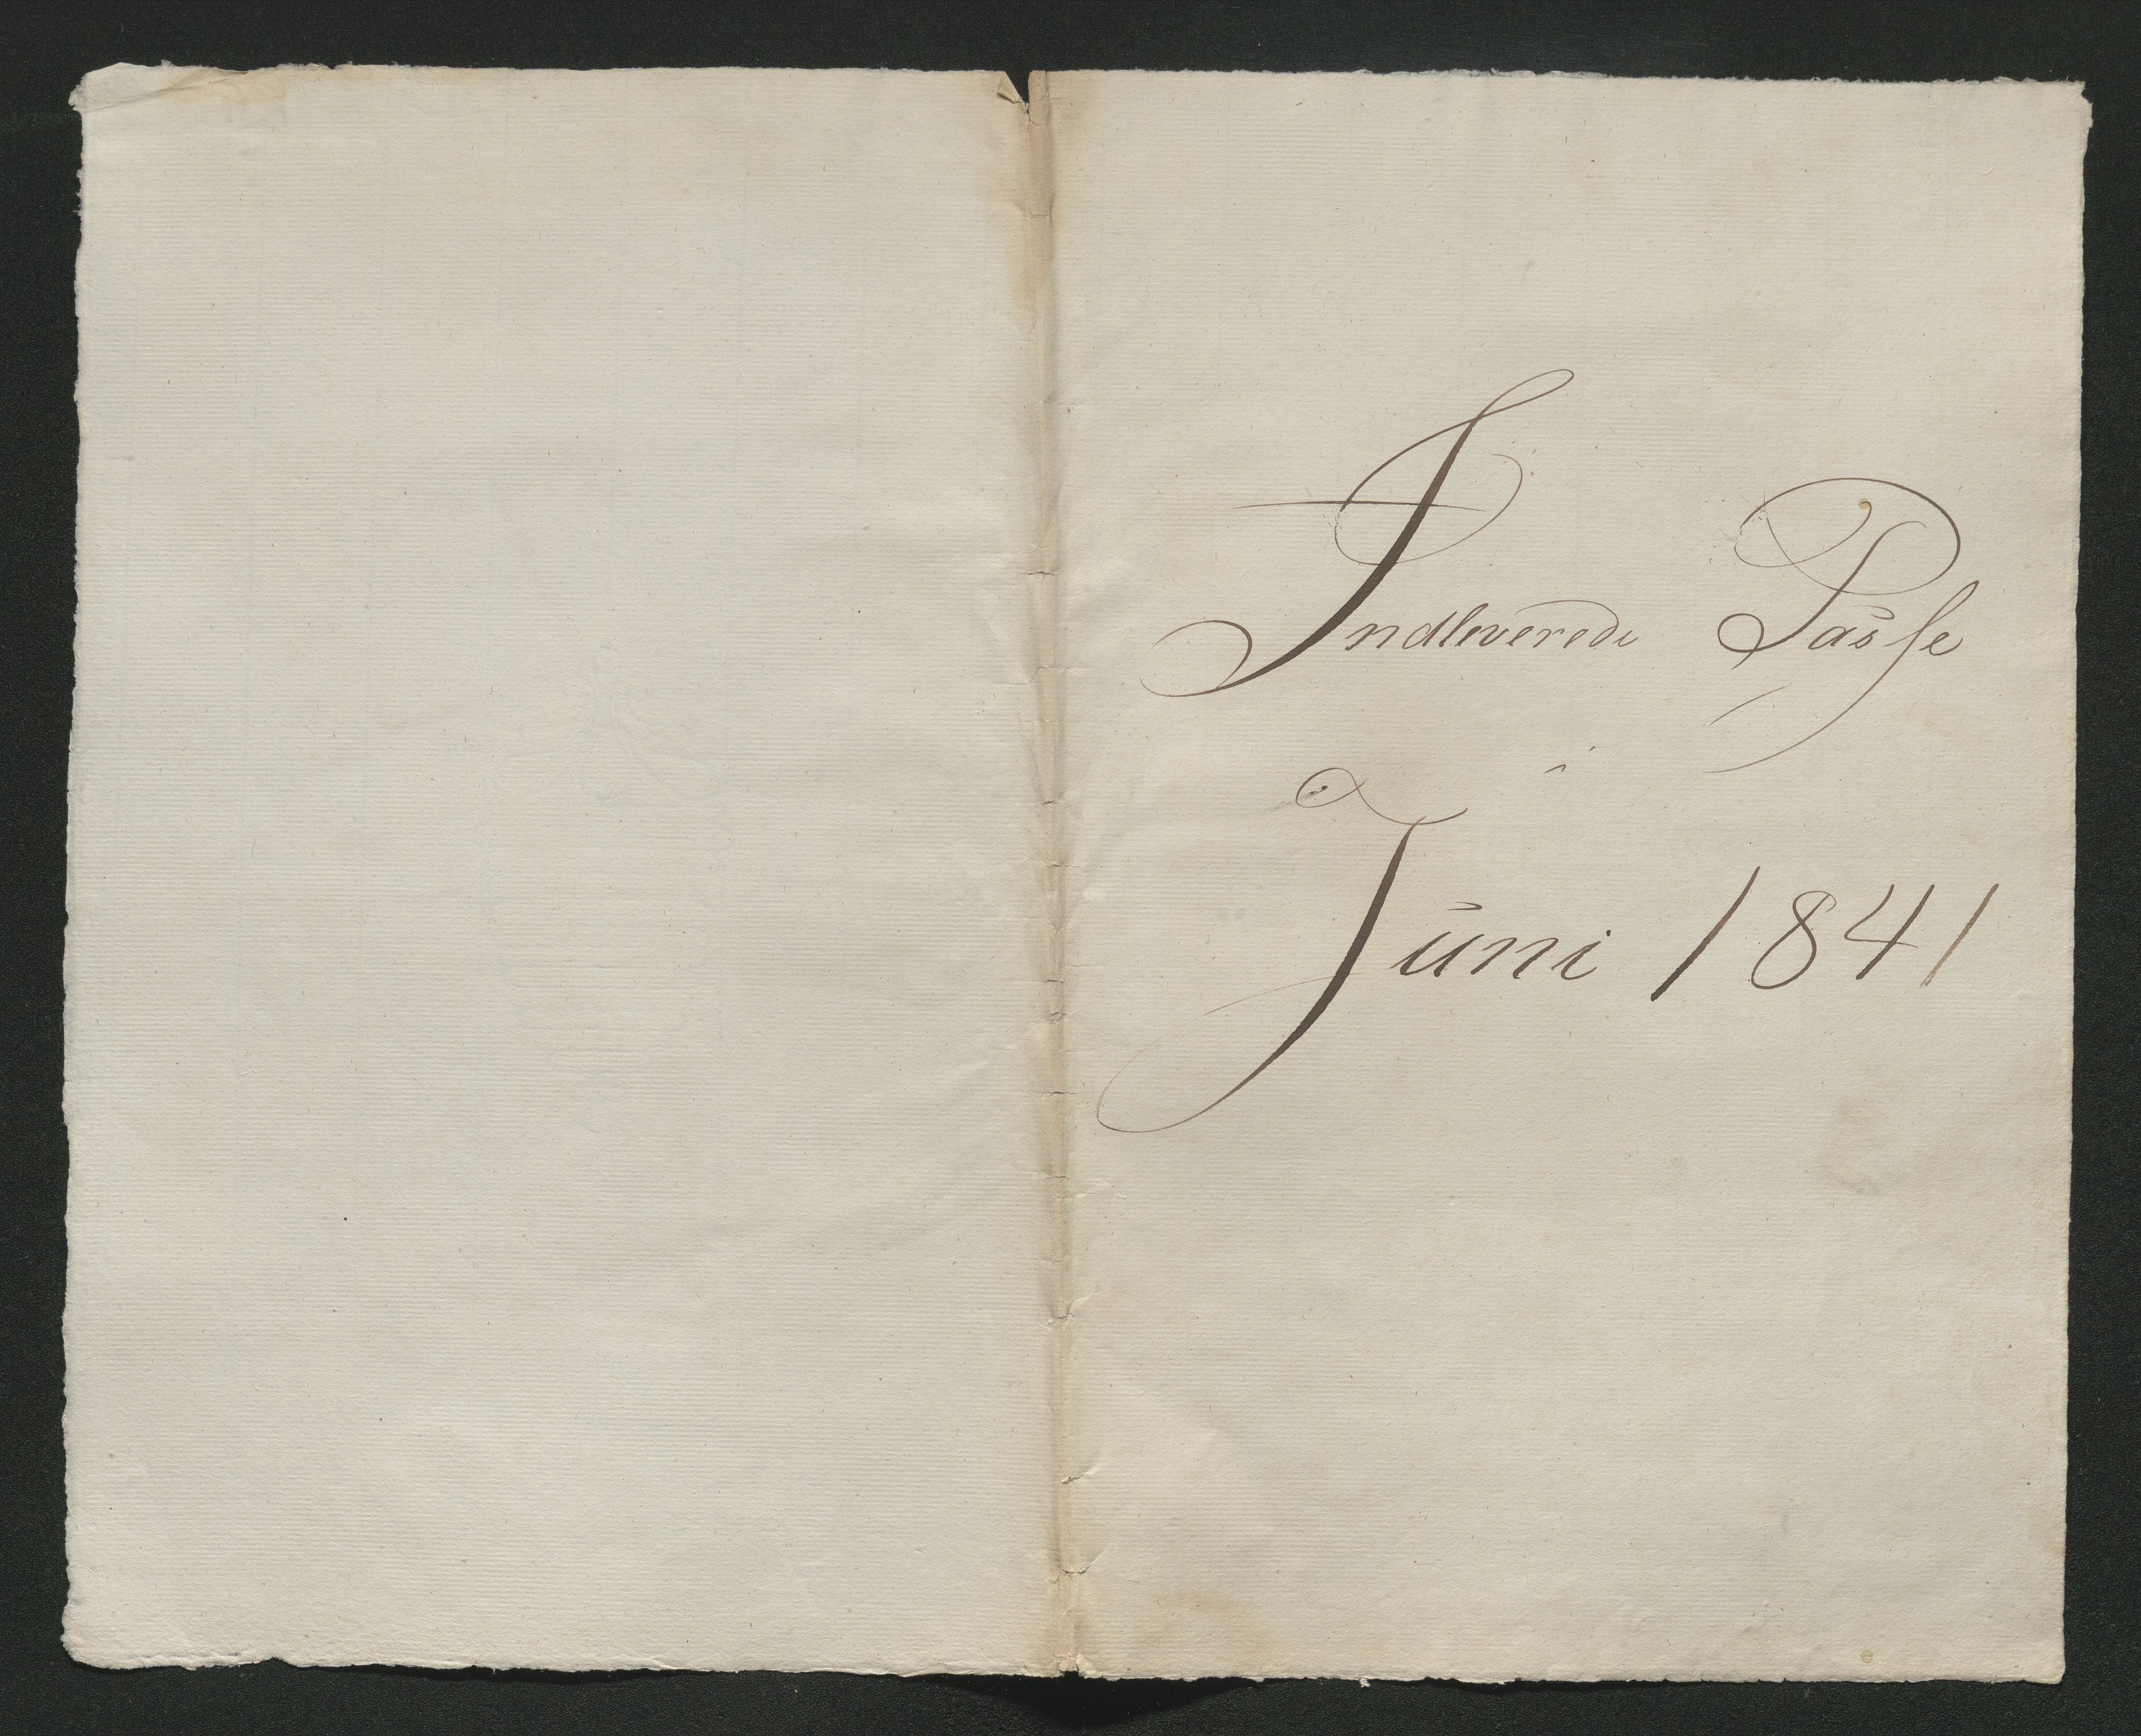 Indleverede Passe
i
Juni 1841